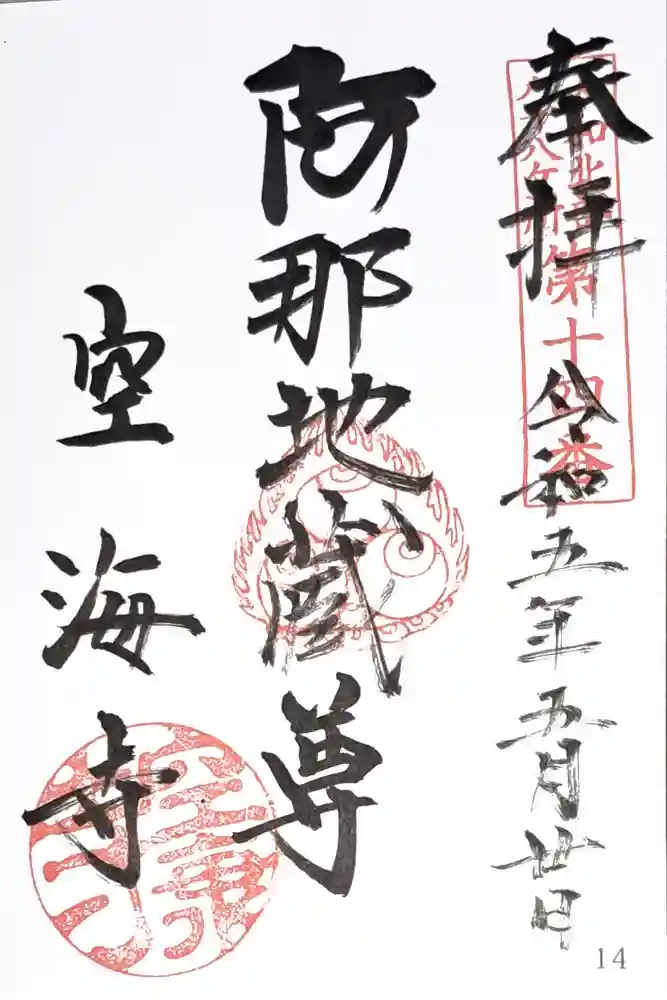 奉拝 令和五年五月廿日
第十四番
阿那地蔵尊
空海寺
14